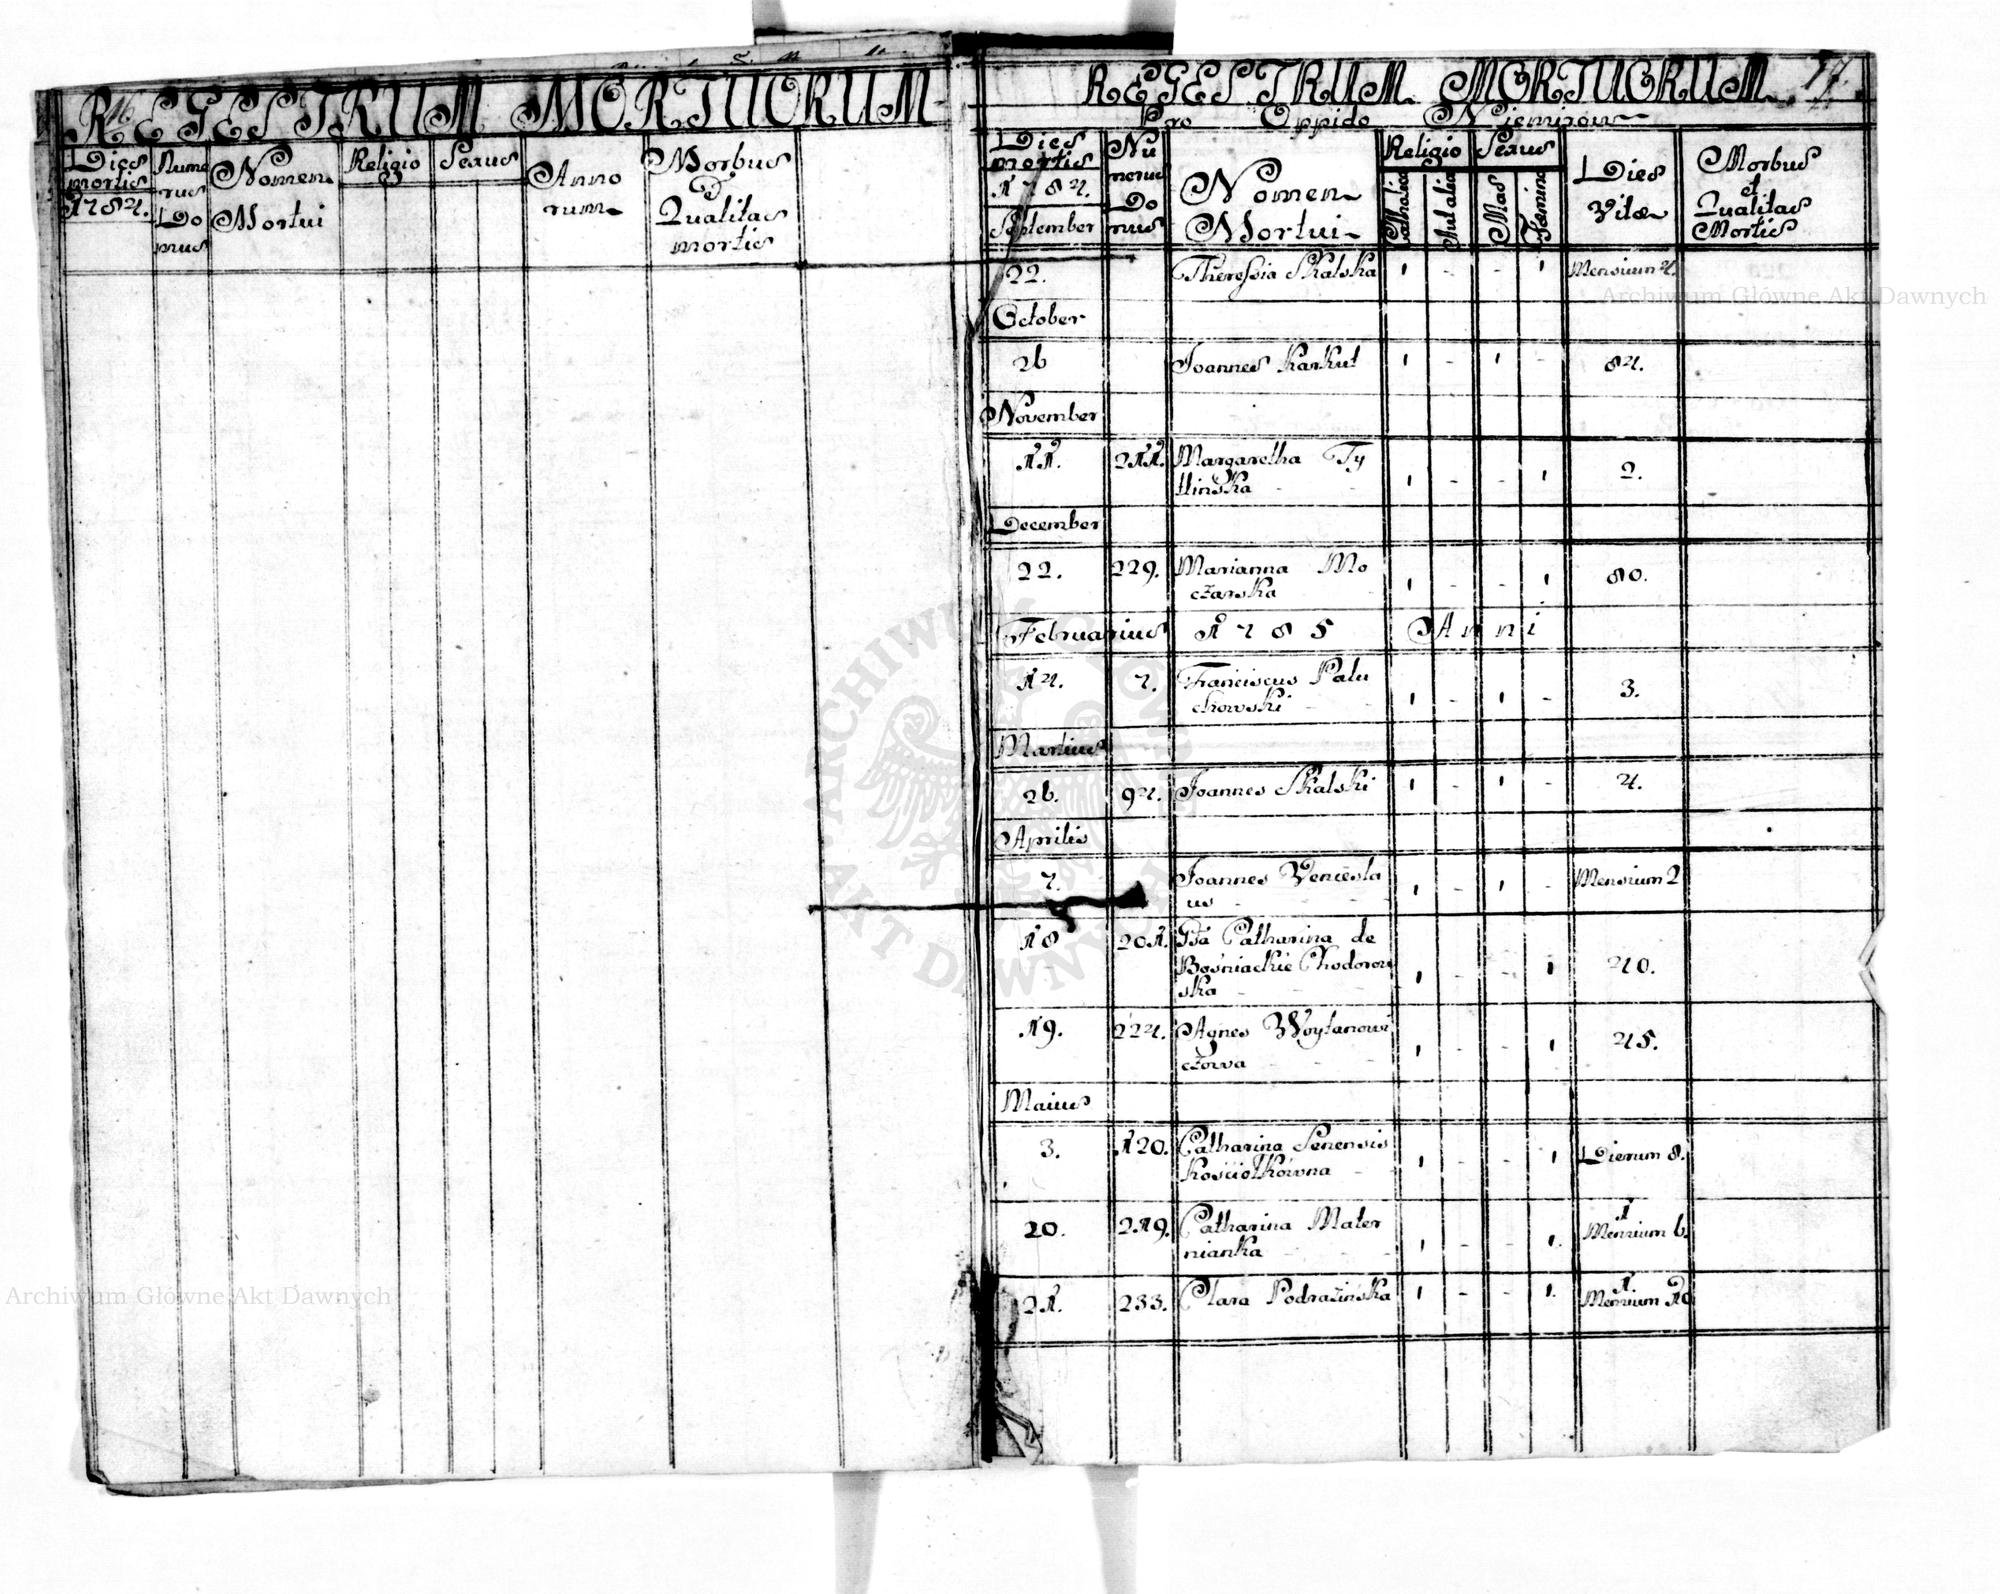 16
REGESTRUM MORTUORUM
Dies mortis 1784.
Numerus Domus
Nomen Mortui
Religio
Sexus
Annorum
Morbus & Qualitas mortis
REGESTRUM MORTUORUM 17.
Pro Oppido Niemirow
Dies mortis 1784. September
Numerus Domus
Nomen Mortui
Religio
Catholica
Aut alia
Sexus
Mas
Fœmina
Dies Vitæ
Morbus et Qualitas Mortis
22. Theressia Skalska 1 - - 1 Mensium 4.
October
26 Joannes Karkut 1 - 1 - 84.
November
11. 211. Margaretha Ty
tlinska 1 - - 1 2.
December
22. 229. Marianna Mo
czarska 1 - - 1 80.
Februarius 1785 Anni
14. 7. Franciscus Palu
chowski 1 - 1 - 3.
Martius
26. 94. Joannes Skalski 1 - 1 - 4.
Aprilis
7. Joannes Vencesla
us 1 - 1 - Mensium 2
18 201. Catharina de
Bośniackie Chodorow
ska 1 - - 1 40.
19. 224. Agnes Woytanowi
czowa 1 - - 1 45.
Maius
3. 120. Catharina Senensis
Kościołkowna 1 - - 1 Dierum 8.
20. 219. Catharina Mater
nianka 1 - - 1. 1 Mensium 6.
21. 233. Clara Podrazinska 1 - - 1. 1. Mensium 10
Archiwum Główne Akt Dawnych
Archiwum Główne Akt Dawnych
ARCHIWUM GŁÓWNE
AKT DAWNYCH